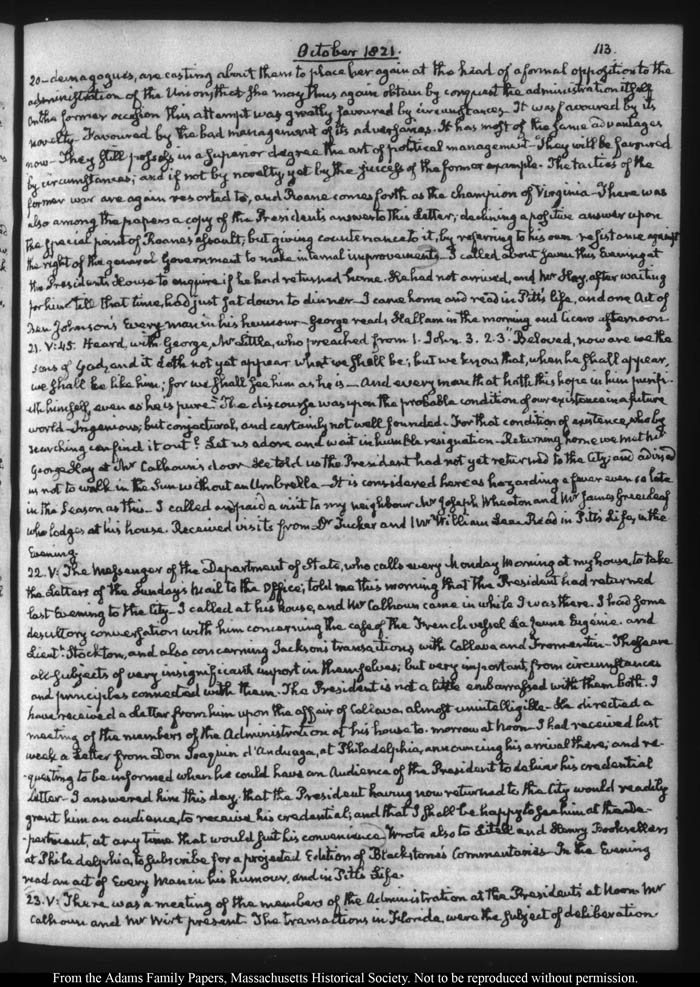 October 1821.
113.
20– demagogues, are casting about them to place her again at the head of a formal opposition to the
administration of the Union, that she may thus again obtain by conquest the administration itself
On the former occasion this attempt was greatly favoured by circumstances– It was favoured by its
novelty– Favoured by the bad management of its adversaries. It has most of the same advantages
now– They still possess in a superior degree the art of political management– They will be favoured
by circumstances; and if not by novelty yet by the success of the former example. The tactics of the
former war are again resorted to, and Roane comes forth as the champion of Virginia– There was
also among the papers a copy of the Presidents answer to this Letter; declining a positive answer upon
the special point of Roanes assault; but giving countenance to it, by referring to his own resistance against
the right of the general Government to make internal improvements– I called about seven this Evening at
the Presidents House to enquire if he had returned home. He had not arrived, and Mr Hay, after waiting
for him till that time, had just sat down to dinner– I came home and read in Pitt's life, and one Act of
Ben Johnson's Every man in his humour– George reads Hallam in the morning and Cicero afternoon.
21. V:45. Heard, with George, Mr Little, who preached from 1. John 3. 2.3 "Beloved, now are we the
sons of God, and it doth not yet appear what we shall be; but we know that, when he shall appear,
we shall be like him; for we shall see him as he is– And every man that hath this hope in him purifi-
eth himself, even as he is pure." The discourse was upon the probable condition of our existence in a future
world– Ingenious, but conjectural, and certainly not well founded. For that condition of existence, who by
searching can find it out? Let us adore and wait in humble resignation– Returning home we met Mr
George Hay at Mr Calhoun's door– He told us the President had not yet returned to the City; and advised
us not to walk in the Sun without an Umbrella– It is considered here as hazarding a fever even so late
in the Season as this– I called and paid a visit to my neighbour Mr Joseph Wheaton and Mr James Greenleaf
who lodges at his house. Received visits from Dr Tucker and Mr William Lee. Read in Pitt's Life, in the
Evening.
22. V: The Messenger of the Department of State, who calls every Monday Morning at my house, to take
the Letters of the Sunday's Mail to the Office, told me this morning that the President had returned
last Evening to the City– I called at his House, and Mr Calhoun came in while I was there. I had some
desultory conversation with him concerning the case of the French vessel La Jeune Eugenie– and
Lieut. Stockton, and also concerning Jackson's transactions with Callava and Fromentin– These are
all subjects of very insignificant import in themselves; but very important, from circumstances
and principles connected with them. The President is not a little embarrassed with them both. I
have received a Letter from him upon the affair of Callava almost unintelligible– He directed a
meeting of the members of the Administration at his house to-morrow at Noon– I had received last
week a Letter from Don Joaquin d'Anduaga, at Philadelphia, announcing his arrival there; and re-
-questing to be informed when he could have an Audience of the President to deliver his credential
Letter– I answered him this day, that the President having now returned to the City would readily
grant him an audience, to receive his credential; and that I shall be happy to see him at the De-
-partment, at any time that would suit his convenience. Wrote also to Littell and Henry Booksellers
at Philadelphia, to subscribe for a projected Edition of Blackstone's Commentaries– In the Evening
read an act of Every Man in his humour, and in Pitt's Life.
23. V: There was a meeting of the members of the Administration at the Presidents at Noon– Mr
Calhoun and Mr Wirt present. The transactions in Florida, were the subject of deliberation
From the Adams Family Papers, Massachusetts Historical Society. Not to be reproduced without permission.